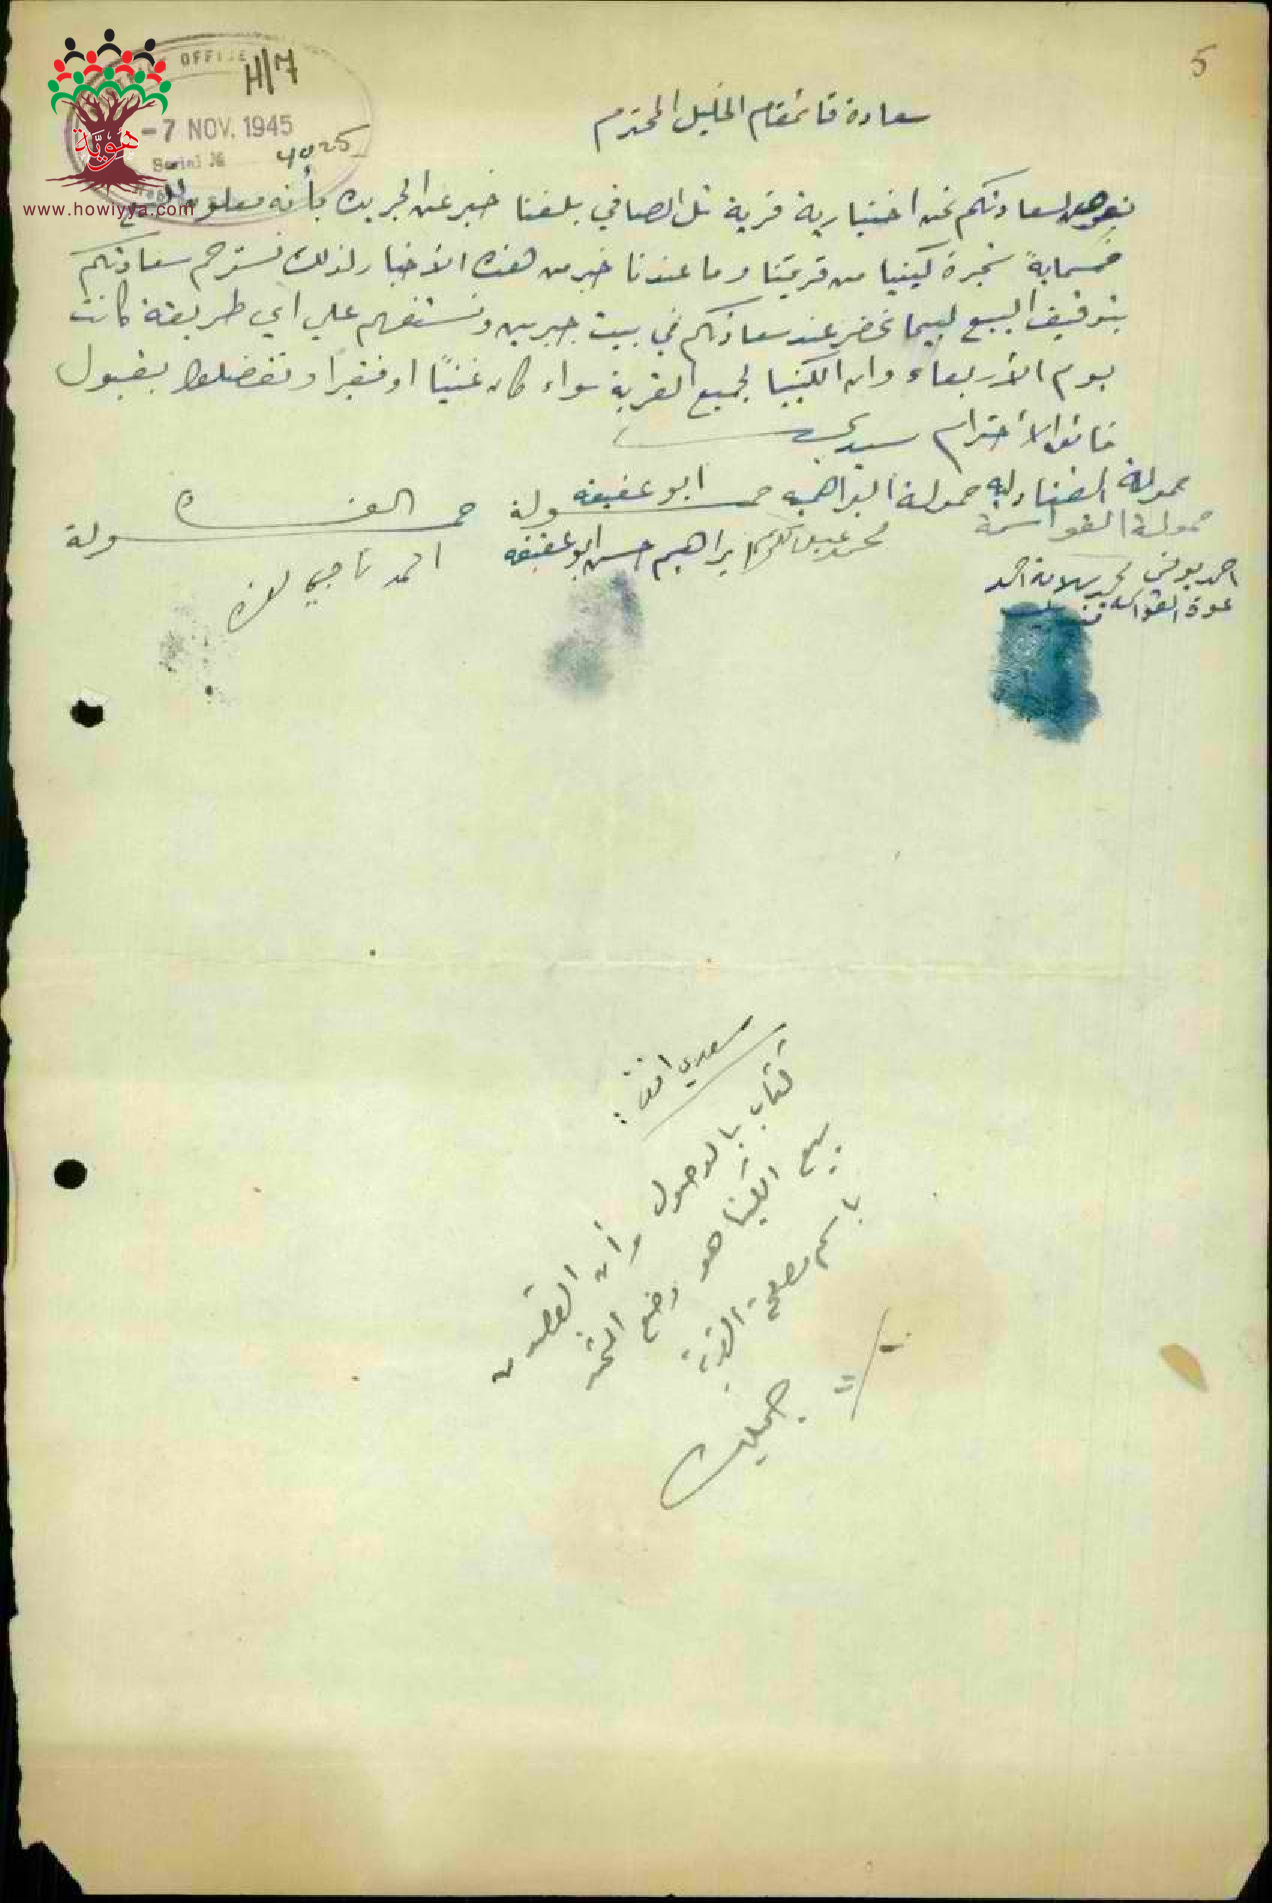 5
OFFICE
H/7
-7 NOV. 1945
Serial №
4025
هَوِيّة
www.howiyya.com
سعادة قائمقام الخليل المحترم
نعرض لسعادتكم نحن اختيارية قرية تل الصافي بلغنا خبر عن الجريده بأنه معلوم
خمسماية شجرة كينيا من قريتنا وما عندنا خبر من هذه الأخبار لذلك نسترحم سعادتكم
بتوقيف البيع لبيما نحضر عند سعادتكم في بيت جبرين ونستفهم على اي طريقة كانت
يوم الأربعاء وان الكينيا لجميع القرية سواء كان غنيًا او فقيرا وتفضلوا بقبول
فائق الأحترام سيدي
حمولة حمولة البراهميه حمولة ابو عفيفه حمولة العزه
حمولة القواسمة
محمد ابراهيم حسن ابو عفيفه
احمد ناجي العزه
احمد يونس سلامة احمد
عودة
سعدي افندي:
كتاب بالوصول وأن القصد من
بيع الكينيا هو وضع الثمن
باسم مصلحة القرية